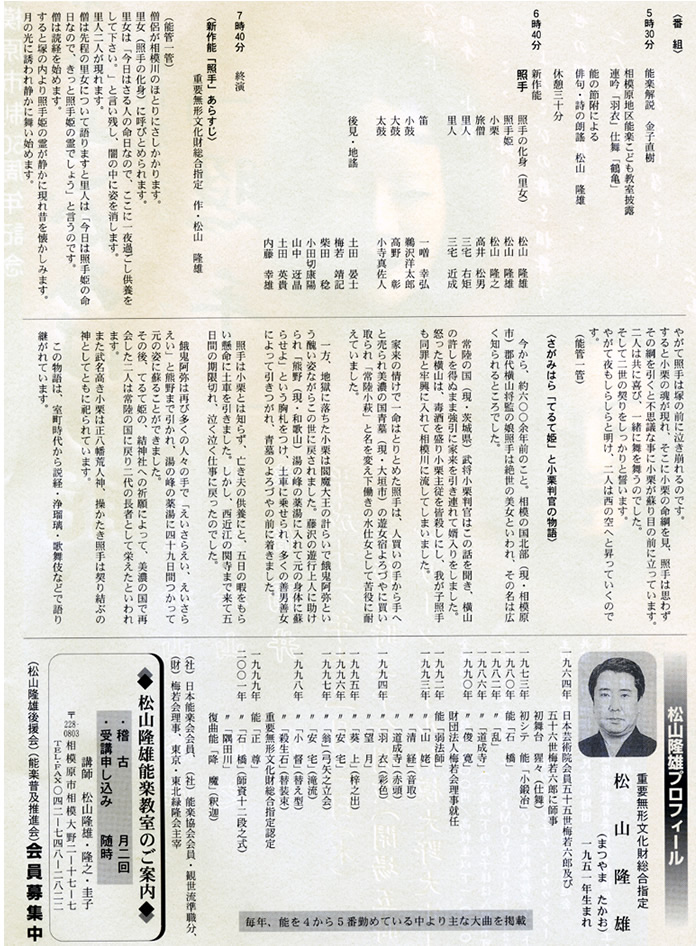 〈番 組〉
5時30分
能楽解説 金子直樹
相模原地区能楽こども教室披露
連吟「羽衣」仕舞「鶴亀」
能の節附による
俳句・詩の朗謡 松山 隆雄
休憩三十分
6時40分
新作能
照手
照手の化身（里女） 松山 隆雄
照手姫 松山 隆雄
小栗 松山 隆之
旅僧 高井 松男
里人 三宅 右矩
里人 三宅 近成
笛 一噌 幸弘
小鼓 鵜沢洋太郎
大鼓 高野 彰
太鼓 小寺真佐人
後見・地謡
土田 晏士
梅若 靖記
柴田 稔
小田切康陽
山中 迓晶
土田 英貴
内藤 幸雄
7時40分 終演
〈新作能「照手」あらすじ〉
重要無形文化財総合指定 作・松山 隆雄
（能管一管）
僧侶が相模川のほとりにさしかかります。
里女（照手の化身）に呼びとめられます。
里女は「今日はさる人の命日なので、ここに一夜過ごし供養を
して下さい。」と言い残し、闇の中に姿を消します。
里人二人が現れます。
僧は先程の里女について語りますと里人は「今日は照手姫の命
日なので、きっと照手姫の霊でしょう」と言うのです。
僧は読経を始めます。
すると塚の内より照手姫の霊が静かに現れ昔を懐かしみます。
月の光に誘われ静かに舞い始めます。
やがて照手は塚の前に泣き崩れるのです。
すると小栗の魂が現れ、そこに小栗の命綱を見、照手は思わず
その綱を引くと不思議な事に小栗が蘇り目の前に立っています。
二人は共に喜び、一緒に舞を舞うのでした。
そして二世の契りをしっかりと誓います。
やがて夜もしらしらと明け、二人は西の空へと昇っていくので
す。
（能管一管）
〈さがみはら「てるて姫」と小栗判官の物語〉
今から、約六〇〇余年前のこと。相模の国北部（現・相模原
市）郡代横山将監の娘照手は絶世の美女といわれ、その名は広
く知られるところでした。
常陸の国（現・茨城県）武将小栗判官はこの話を聞き、横山
の許しを得ぬまま強引に家来を引き連れて婿入りをしました。
怒った横山は、毒酒を盛り小栗主従を皆殺しにし、我が子照手
も同罪と牢輿に入れて相模川に流してしまいました。
家来の情けで一命はとりとめた照手は、人買いの手から手へ
と売られ美濃の国青墓（現・大垣市）の遊女宿よろづやに買い
取られ「常陸小萩」と名を変え下働きの水仕女として苦役に耐
えていました。
一方、地獄に落ちた小栗は閻魔大王の計らいで餓鬼阿弥とい
う醜い姿ながらこの世に戻されました。藤沢の遊行上人に助け
られ「熊野（現・和歌山）湯の峰の薬湯に入れて元の身体に蘇
らせよ」という胸札をつけ、土車に乗せられ、多くの善男善女
によって引きつがれ、青墓のよろづやの前に着きました。
照手は小栗とは知らず、亡き夫の供養にと、五日の暇をもら
い懸命に土車を引きました。しかし、西近江の関寺まで来て五
日間の期限切れ、泣く泣く仕事に戻ったのでした。
餓鬼阿弥は再び多くの人々の手で「えいさらえい、えいさら
えい」と熊野まで引かれ、湯の峰の薬湯に四十九日間つかって
元の姿に蘇ることができました。
その後、てるて姫の、結神社への祈願によって、美濃の国で再
会した二人は常陸の国に戻り二代の長者として栄えたといわれ
ます。
また武名高き小栗は正八幡荒人神、操かたき照手は契り結ぶの
神としてともに祀られています。
この物語は、室町時代から説経・浄瑠璃・歌舞伎などで語り
継がれています。
松山隆雄プロフィール
重要無形文化財総合指定
松山 隆雄
（まつやま たかお）
一九五一年生まれ
一九六四年 日本芸術院会員五十五世梅若六郎及び
五十六世梅若六郎に師事
初舞台 猩々（仕舞）
一九七三年 初シテ 能「小鍛冶」
一九八〇年 能「石橋」
一九八二年 〃「乱」
一九八六年 〃「道成寺」
一九九〇年 〃「俊寛」
財団法人梅若会理事就任
一九九二年 能「弱法師」
一九九三年 〃「山姥」
〃「清経」（音取）
〃「道成寺」（赤頭）
一九九四年 〃「羽衣」（彩色）
〃「望月」
一九九五年 〃「葵上」（梓之出）
一九九六年 〃「安宅」
一九九七年 「翁」（弓矢之立会）
〃「安宅」（滝流）
一九九八年 〃「小督」（替え型）
〃「殺生石」（替装束）
重要無形文化財総合指定認定
一九九九年 能「正尊」
二〇〇一年 〃「石橋」（師資十二段之式）
〃「隅田川」
復曲能「降魔」（釈迦）
（社）日本能楽会会員、（社）能楽協会会員・観世流準職分、
（財）梅若会理事、東京・東北緑隆会主宰
毎年、能を4から5番勤めている中より主な大曲を掲載
◆松山隆雄能楽教室のご案内◆
・稽古 月二回
・受講申し込み 随時
講師 松山隆雄・隆之・圭子
〒228-0803 相模原市相模大野二-十七-七
TEL・FAX〇四二-七四八-二八二二
（松山隆雄後援会）（能楽普及推進会）会員募集中